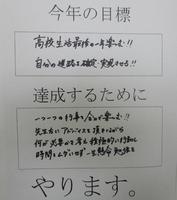 今年の目標
高校生活最後の一年楽しむ!!
自分の進路を確定・実現させる!!
達成するために
一つ一つの行事を全力で楽しむ。
先生方にアドバイスを頂きながら
何が必要かを考え積極的に行動し
時間をムダにせず一生懸命勉強を
やります。